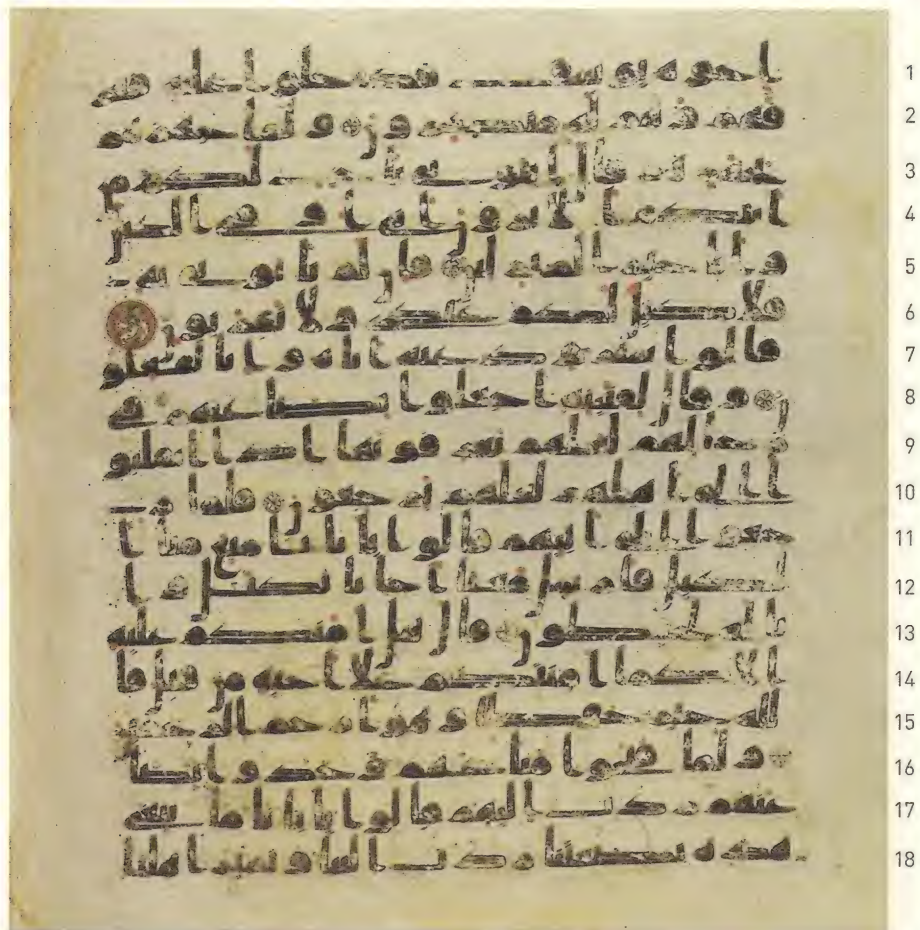 اخوه يوسف فدخلوا عليه فعر
فهم وهم له منكرون ولما جهزهم
بجهزهم قال ائتوني باخ لكم من
ابيكم الا ترون اني اوفي الكيل
وانا خير المنزلين فان لم تاتوني به
فلا كيل لكم عندي ولا تقربون
قالوا سنرود عنه اباه وانا لفعلو
ن وقال لفتينه اجعلوا بضاعتهم في
رحالهم لعلهم يعرفونها اذا انقلبو
ا الى اهلهم لعلهم يرجعون فلما ر
جعوا الى ابيهم قالوا يابانا منع منا ا
لكيل فارسل معنا اخانا نكتل وا
نا له لحفظون قال هل امنكم عليه
الا كما امنتكم على اخيه من قبل فا
لله خير حفظا وهو ارحم الرحمين
ولما فتحوا متاعهم وجدوا بضا
عتهم ردت اليهم قالوا يابانا ما نبغي
هذه بضعتنا ردت الينا ونمير اهلنا
1
2
3
4
5
6
7
8
9
10
11
12
13
14
15
16
17
18